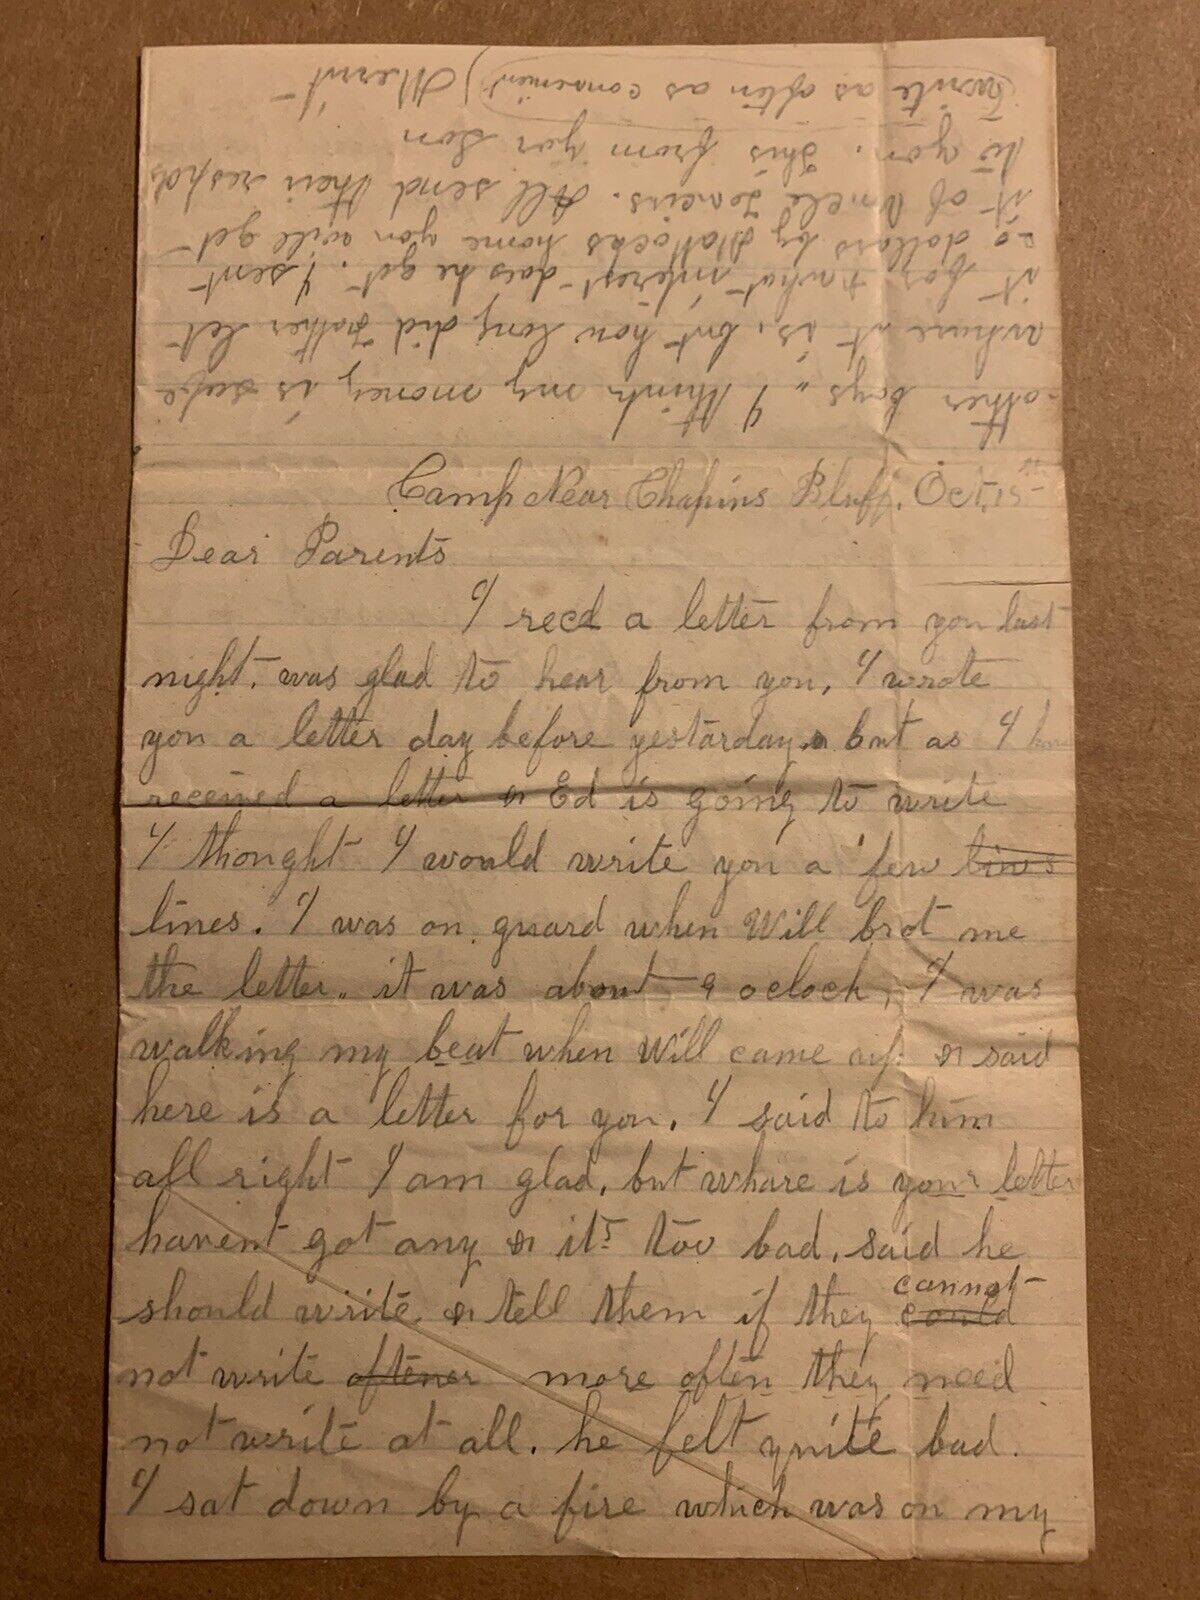 Camp Near Chapins Bluff. Oct. 15th
Dear Parents
I recd a letter from you last
night. was glad to hear from you, I wrote
you a letter day before yestarday. & but as I have
received a letter & Ed is going to write
I thought I would write you a few lines
lines. I was on guard when Will brot me
the letter. it was about 9 oclock, I was
walking my beat when Will came up & said
here is a letter for you. I said to him
all right I am glad, but whare is your letter
havent got any & its too bad. said he
should write & tell them if they could cannot
not write oftener more often they need
not write at all. he felt quite bad.
I sat down by a fire which was on my
other boys" I think my money is safe
whare it is, but how long did Father let
it for & what interest does he get. I sent
20 dollars by home you will get
it of Uncle. All send their respects
to you. This from your Son
(write as often as convenient)